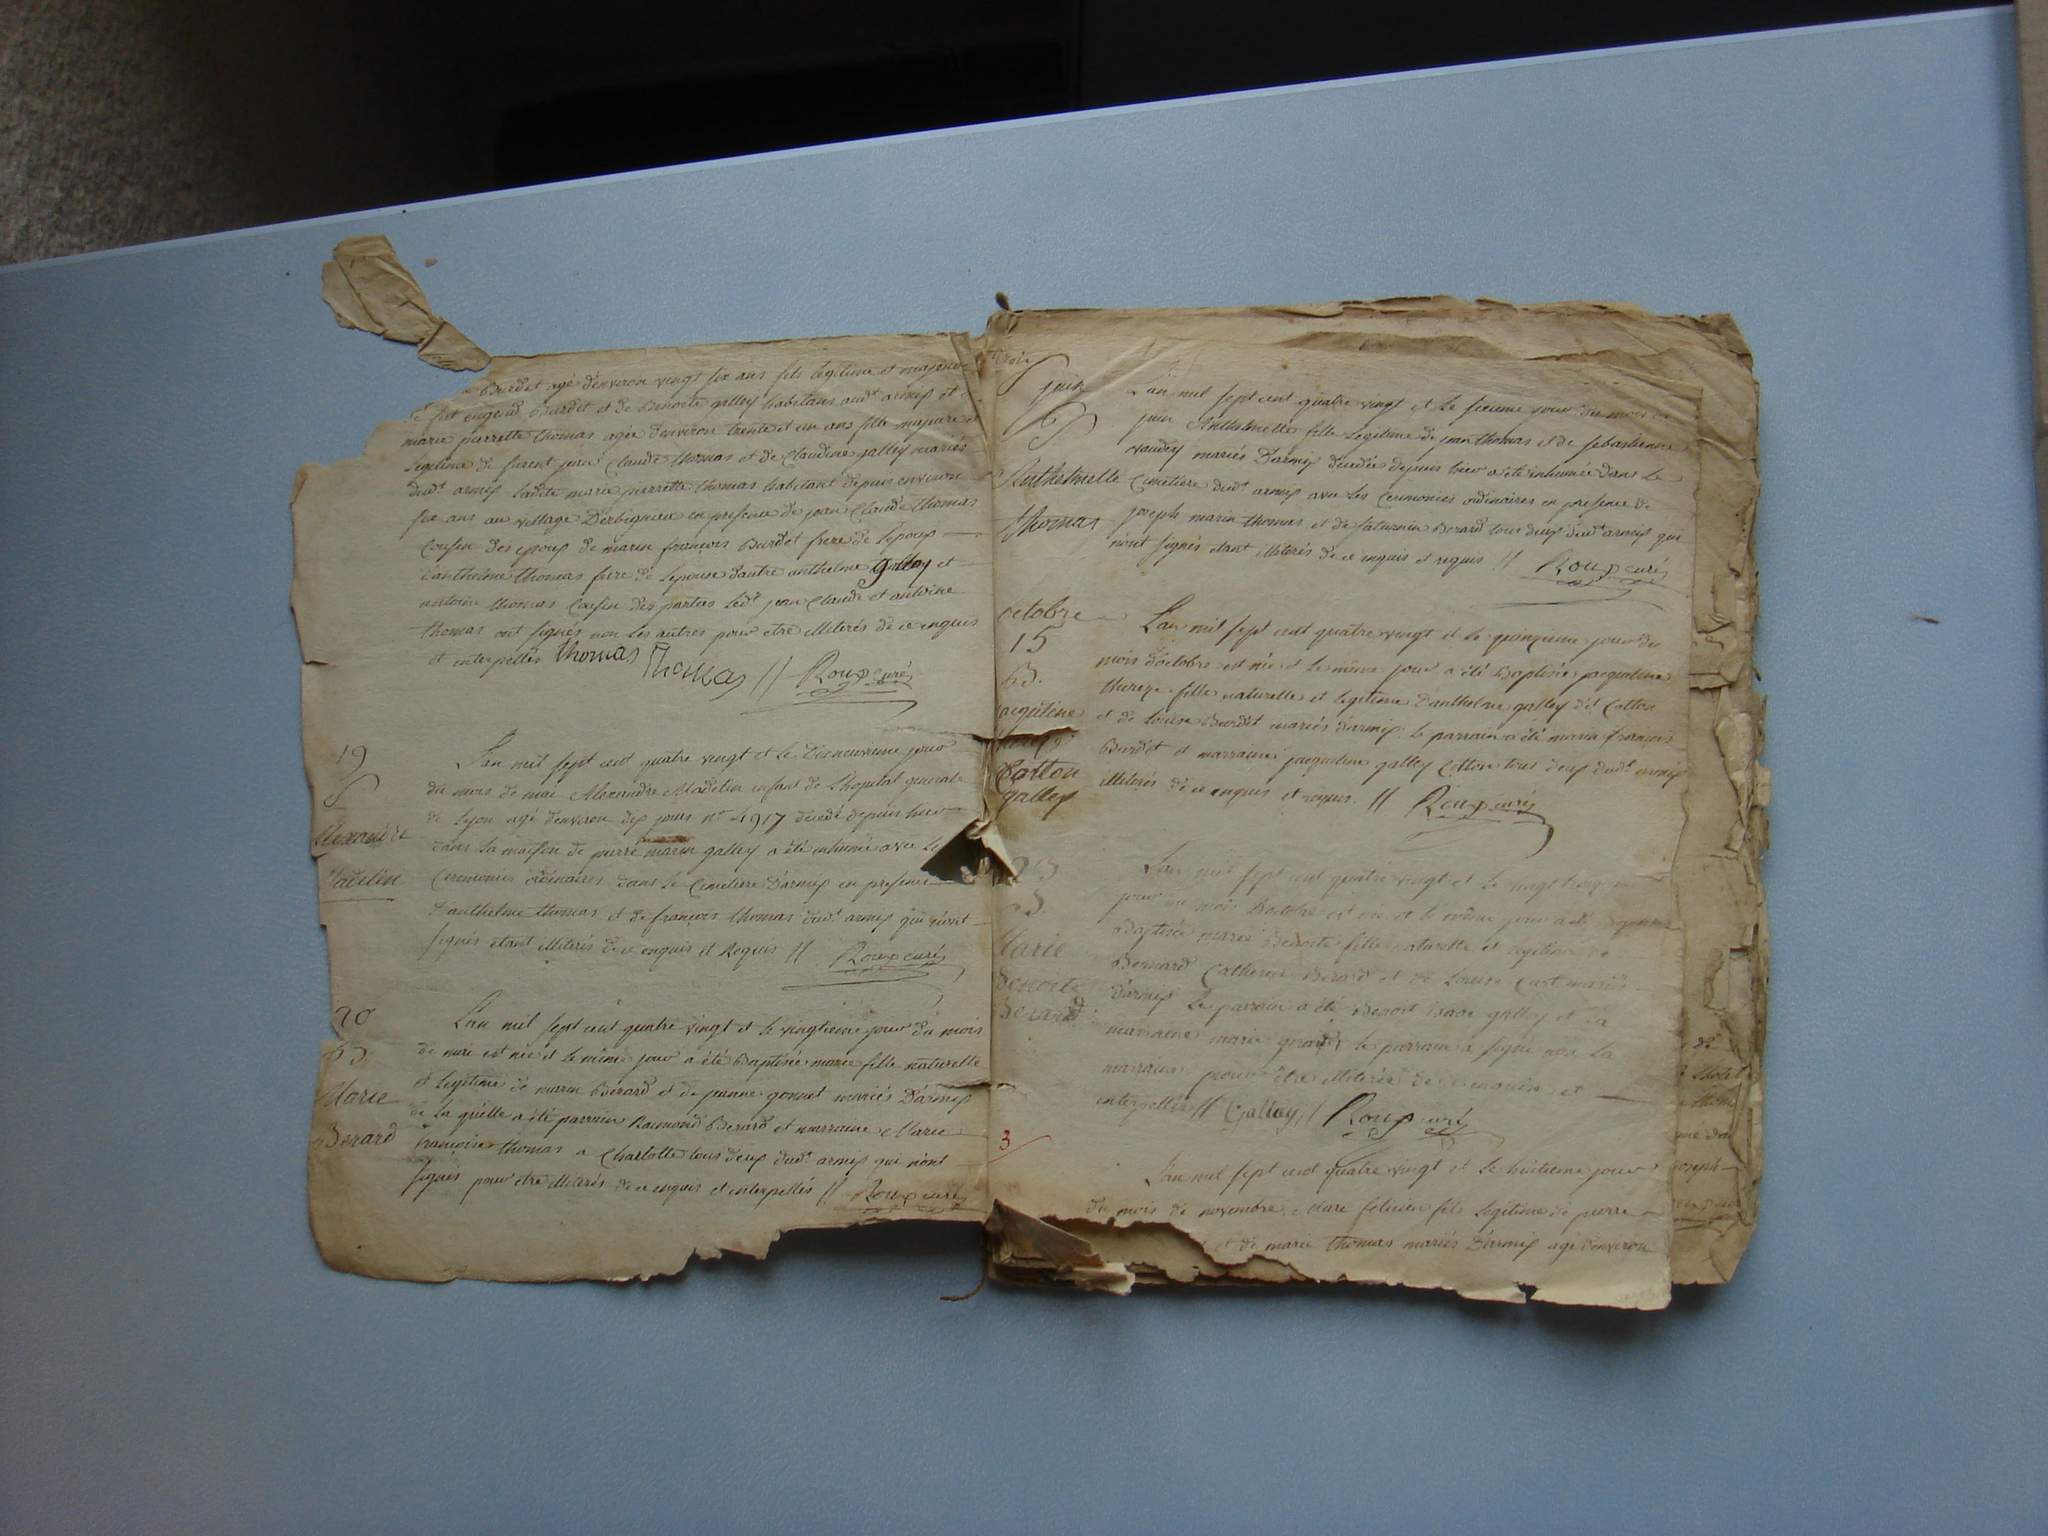 Burdet agé denviron vingt six ans fils legitime et majeur
de fut eugend Burdet et de Benoite galley habitans audt armix et
marie pierrette thomas agée denviron trente et un ans fille majeure et
legitime de furent jean Claude thomas et de Claudine galley mariés
dudt armix ladite marie pierrette thomas habitant depuis environ
six ans au village Derbigneu en presence de jean Claude thomas
Cousin des epoux de marin françois Burdet frere de lepoux
danthelme thomas frere de lepouse dautre anthelme galley et
thomas Cousin des parties ledt jean Claude et antoine
thomas ont signés non les autres pour etre illiterés de ce enquis
et interpellés thomas Thomas // Roux curé
19
S
Alexandre
Madelin
Lan mil sept cent quatre vingt et le Dixneuvieme jour
du mois de mai Alexandre Madelin enfant de lhopital general
de Lyon agé denviron dix jours n° 4917 decedé depuis hier
dans la maison de pierre marin galley a été inhumé avec les
Ceremonies ordinaires dans le Cimetiere Darmix en presence
danthelme thomas et de françois thomas dudt armix qui nont
signés etant illiterés de ce enquis et Requis // Roux curé
20
B
Marie
Berard
Lan mil sept cent quatre vingt et le vingtieme jour du mois
de mai est née et le même jour a été Baptisée marie fille naturelle
et legitime de marin Berard et de jeanne gonnet mariés Darmix
de la quelle a été parrain Raimond Berard et marraine Marie
françoise thomas a Charlotte tous deux dudt armix qui nont
signés pour etre illiterés de ce enquis et interpellés // Roux curé
Trois
juin
6
S
Anthelmette
thomas
Lan mil sept cent quatre vingt et le sixieme jour du mois de
juin Anthelmette fille legitime de jean thomas et de sebastienne
vaudey mariés Darmix decedée depuis hier a été inhumée dans le
Cimetiere dudt armix avec les Ceremonies ordinaires en presence de
joseph marin thomas et de saturnin Berard tous deux dudt armix qui
nont signés etant illiterés de ce enquis et requis // Roux curé
octobre
15
B.
jacqueline
Cotton
galley
Lan mil sept cent quatre vingt et le quinzieme jour du
mois doctobre est née et le même jour a été Baptisée jacqueline
thereze fille naturelle et legitime danthelme galley dit Cotton
et de Louise Burdet mariés darmix le parrain a été marin françois
Burdet et marraine jacqueline galley Cotton tous deux dudt armix
illiterés de ce enquis et requis // Roux curé
23
B.
Marie
Benoite
Berard
Lan mil sept cent quatre vingt et le vingt trois
jour du mois Doctobre est née et le même jour a été
Baptisée marie Benoite fille naturelle et legitime de
Bernard Catherin Berard et de Louise Curt mariés
Darmix le parrain a été Benoit isaac galley et la
marraine marie le parrain a signé non la
marraine pour être illiterée de ce enquise et
interpellée // Galley // Roux curé
3
Lan mil sept cent quatre vingt et le huitieme jour
du mois de novembre Marc felicien fils legitime de pierre
et de marie thomas mariés Darmix agé denviron